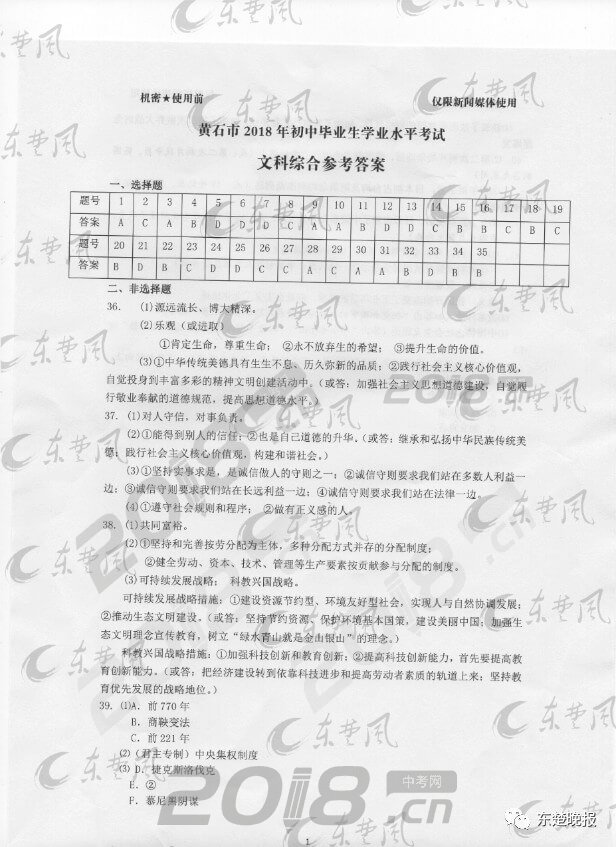 机密★使用前
仅限新闻媒体使用
黄石市 2018 年初中毕业生学业水平考试
文科综合参考答案
一、选择题
题号 1 2 3 4 5 6 7 8 9 10 11 12 13 14 15 16 17 18 19
答案 A C A B D D C A A D C B B C B C
题号 20 21 22 23 24 25 26 27 28 29 30 31 32 33 34 35
答案 B D B C D D C C A C A A B D C D
二、非选择题
36. (1)源远流长、博大精深。
(2)乐观（或进取）
①肯定生命，尊重生命； ②永不放弃生的希望； ③提升生命的价值。
(3)①中华传统美德具有生生不息、历久弥新的品质；②践行社会主义核心价值观，
自觉投身到丰富多彩的精神文明创建活动中。（或答：加强社会主义思想道德建设，自觉履
行敬业奉献的道德规范，提高思想道德水平。）
37. (1)对人守信，对事负责。
(2)①能得到别人的信任；②也是自己道德的升华。（或答：继承和弘扬中华民族传统美
德；践行社会主义核心价值观，构建和谐社会。）
(3)①坚持实事求是，是诚信做人的守则之一；②诚信守则要求我们站在多数人利益一
边；③诚信守则要求我们站在长远利益一边；④诚信守则要求我们站在法律一边。
(4)①遵守社会规则和程序； ②做有正义感的人。
38. (1)共同富裕。
(2)①坚持和完善按劳分配为主体，多种分配方式并存的分配制度；
②健全劳动、资本、技术、管理等生产要素按贡献参与分配的制度。
(3)可持续发展战略； 科教兴国战略。
可持续发展战略措施：①建设资源节约型、环境友好型社会，实现人与自然协调发展；
②推动生态文明建设。（或答：坚持节约资源、保护环境基本国策，建设美丽中国；加强生
态文明理念宣传教育，树立“绿水青山就是金山银山”的理念。）
科教兴国战略措施：①加强科技创新和教育创新；②提高科技创新能力，首先要提高教
育创新能力。（或答：把经济建设转到依靠科技进步和提高劳动者素质的轨道上来；坚持教
育优先发展的战略地位。）
39. (1)A．前 770 年
B．商鞅变法
C．前 221 年
(2)（君主专制）中央集权制度
(3) D．捷克斯洛伐克
E．②
F．慕尼黑阴谋
1
中考网
东楚晚报
东楚风
2018